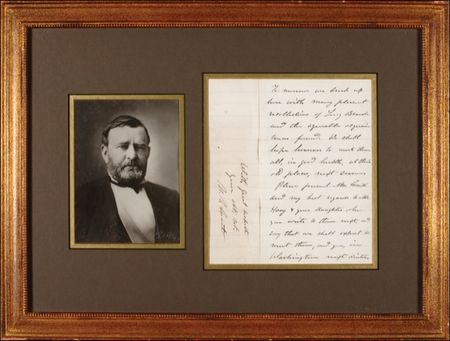 To morrow we break up
here with many pleasant
recollections of Long Branch
and the agreeable acquain-
tances formed. We shall
hope however to meet them
all, in good health, at their
old places, next season.
Please present Mrs.
and my best regards to Mr.
Hoey & your daughter when
you write to them next, and
say that we shall expect to
meet them, and you, in
Washington next winter.
With great respect
your obt. svt.
U. S. Grant